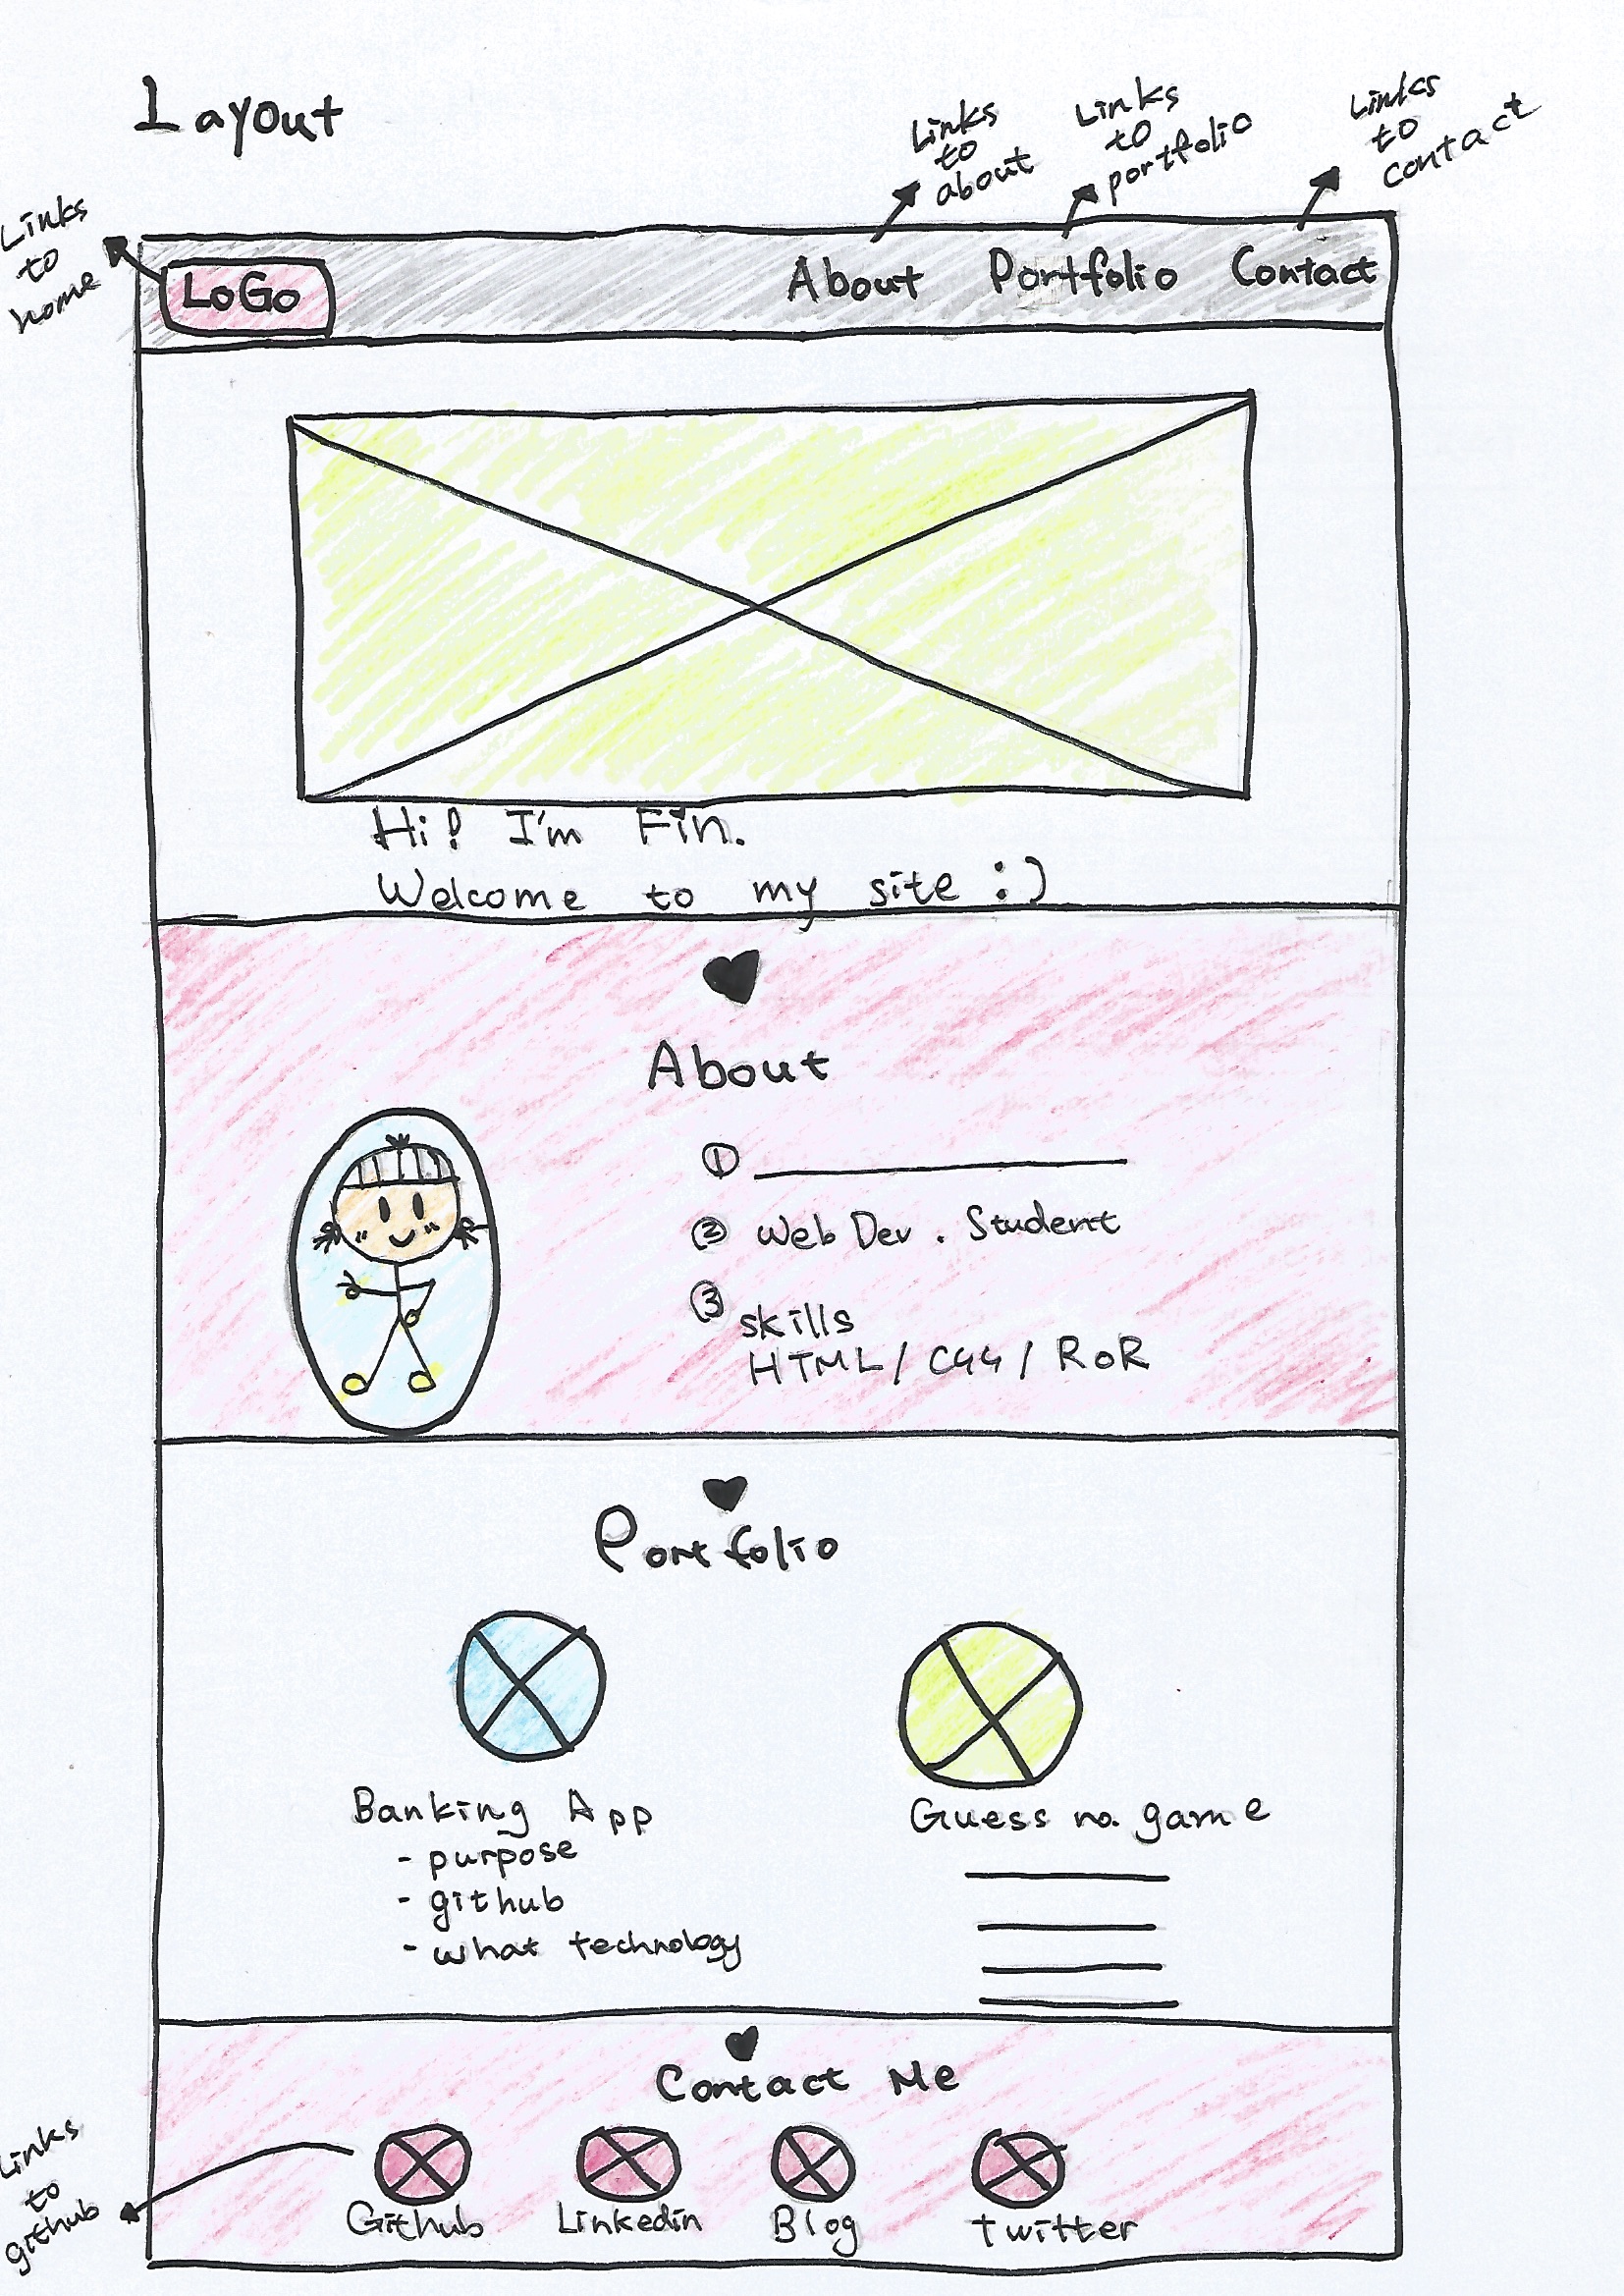 Layout
Links
to
about
Links
to
portfolio
Links
to
contact
Links
to
home
LoGo
About
Portfolio
Contact
Hi! I'm Fin.
Welcome to my site :)
About
①
② Web Dev. Student
③ skills
HTML / CSS / RoR
Portfolio
Banking App
- purpose
- github
- what technology
Guess no. game
Contact Me
Links
to
github
Github
Linkedin
Blog
Twitter